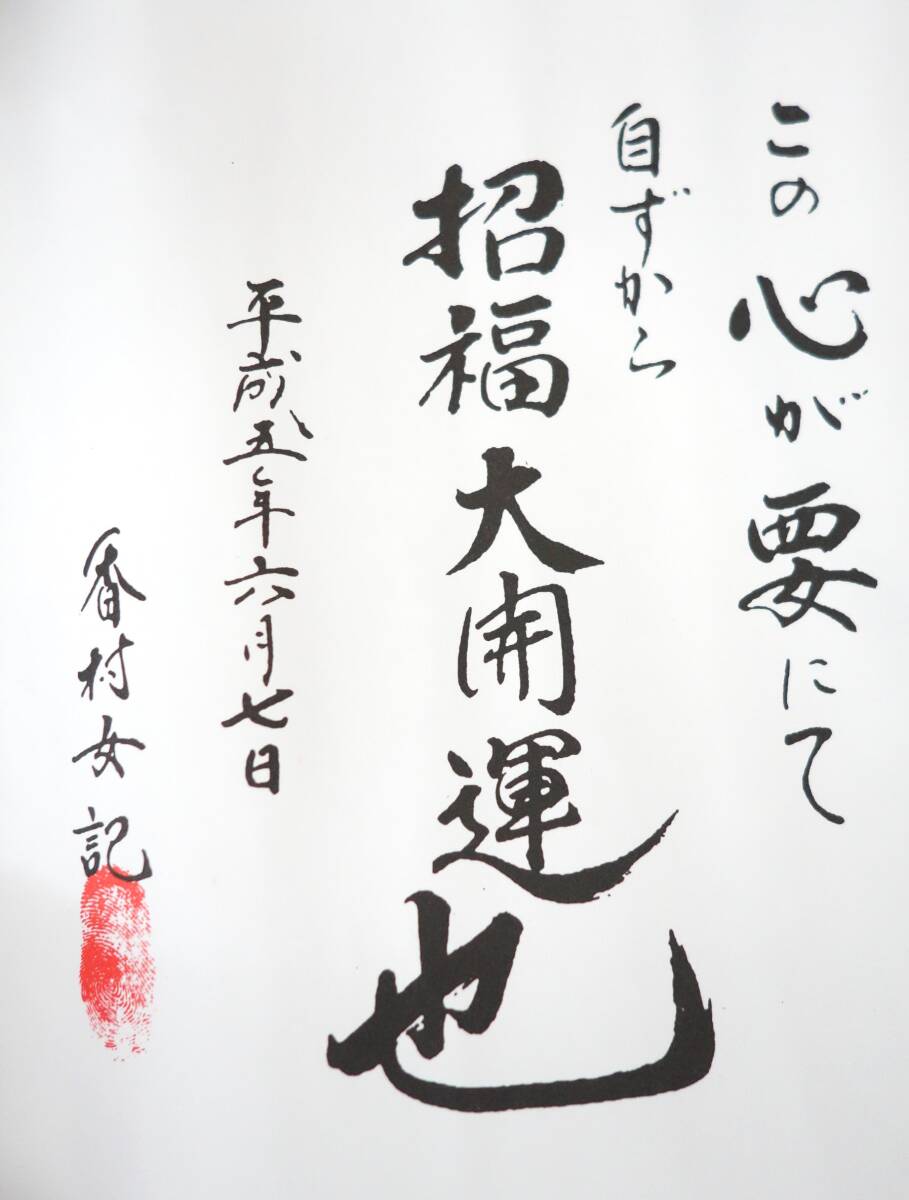 この心が要にて
自ずから
招福大開運也
平成五年六月七日
香村女記